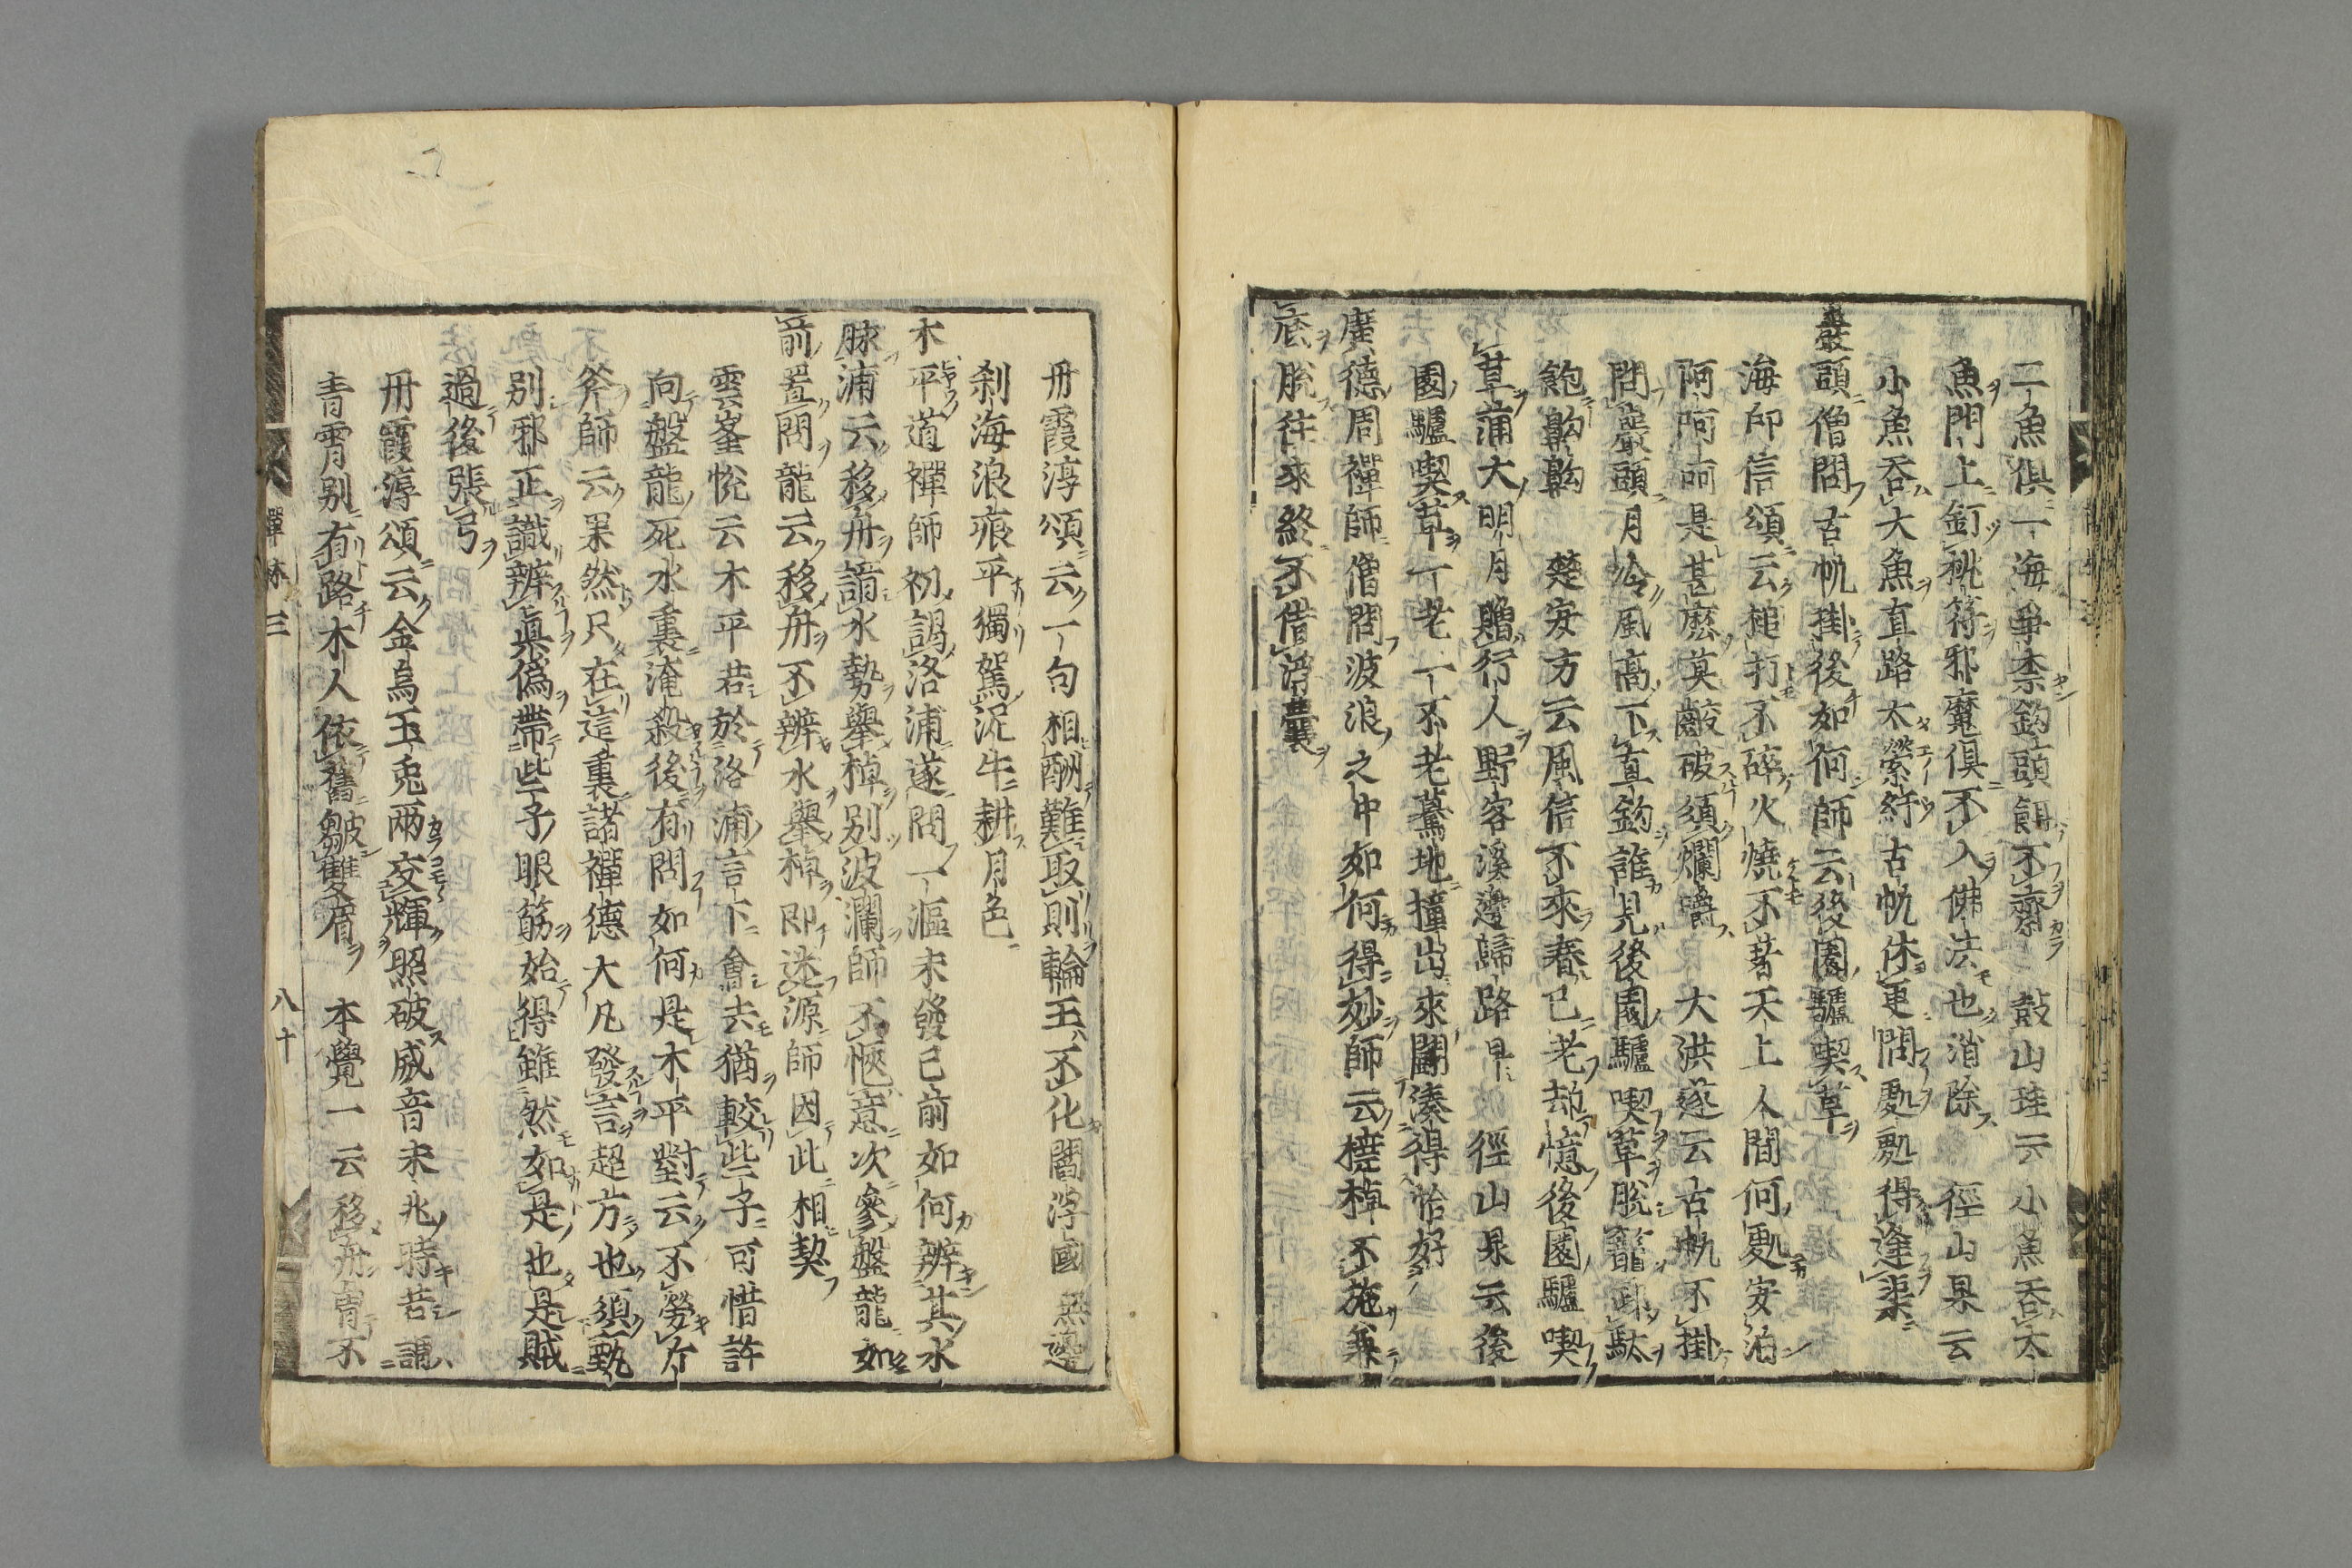 二魚俱一海爭柰鈎頭餌不齋　鼓山珪云小魚吞大
魚門上釘桃符邪魔俱不入佛法也消除　徑山杲云
小魚吞大魚直路太縈紆古帆休更問處處得逢渠
巖頭僧問古帆掛後如何師云後園驢喫草
海印信頌云槌打不碎火燒不著天上人間何處安泊
阿呵呵是甚麼莫皾破須爛嚼　大洪遂云古帆不掛
問巖頭月冷風高下直鈎誰見後園驢喫草脫籠卸馱
飽齁齁　楚安方云風信不來春已老却憶後園驢喫
草蒲大明月贈行人野客溪邊歸路早　徑山杲云後
園驢喫草一老一不老驀地撞出來鬪湊得恰好
廣德周禪師僧問波浪之中如何得妙師云橈棹不施兼
底脫往來終不借浮囊
丹霞淳頌云一句相酬難取則輪王不化閻浮國無邊
刹海浪痕平獨駕泥牛耕月色
木平道禪師初謁洛浦遂問一漚未發已前如何辨其水
脉浦云移舟諳水勢擧棹別波瀾師不愜意次參盤龍如
前置問龍云移舟不辨水擧棹即迷源師因此相契
雲峯悅云木平若於洛浦言下會去猶較些子可惜許
向盤龍死水裏淹殺後有問如何是木平對云不勞斤
斧師云果然只在這裏諸禪德大凡發言超方也須甄
別邪正識辨真偽帶些子眼筋始得雖然如是也是賊
過後張弓
丹霞淳頌云金烏玉兎兩交輝照破威音未兆時昔謂
青霄別有路木人依舊皺雙眉　本覺一云移舟胷不
禪林　三
八十